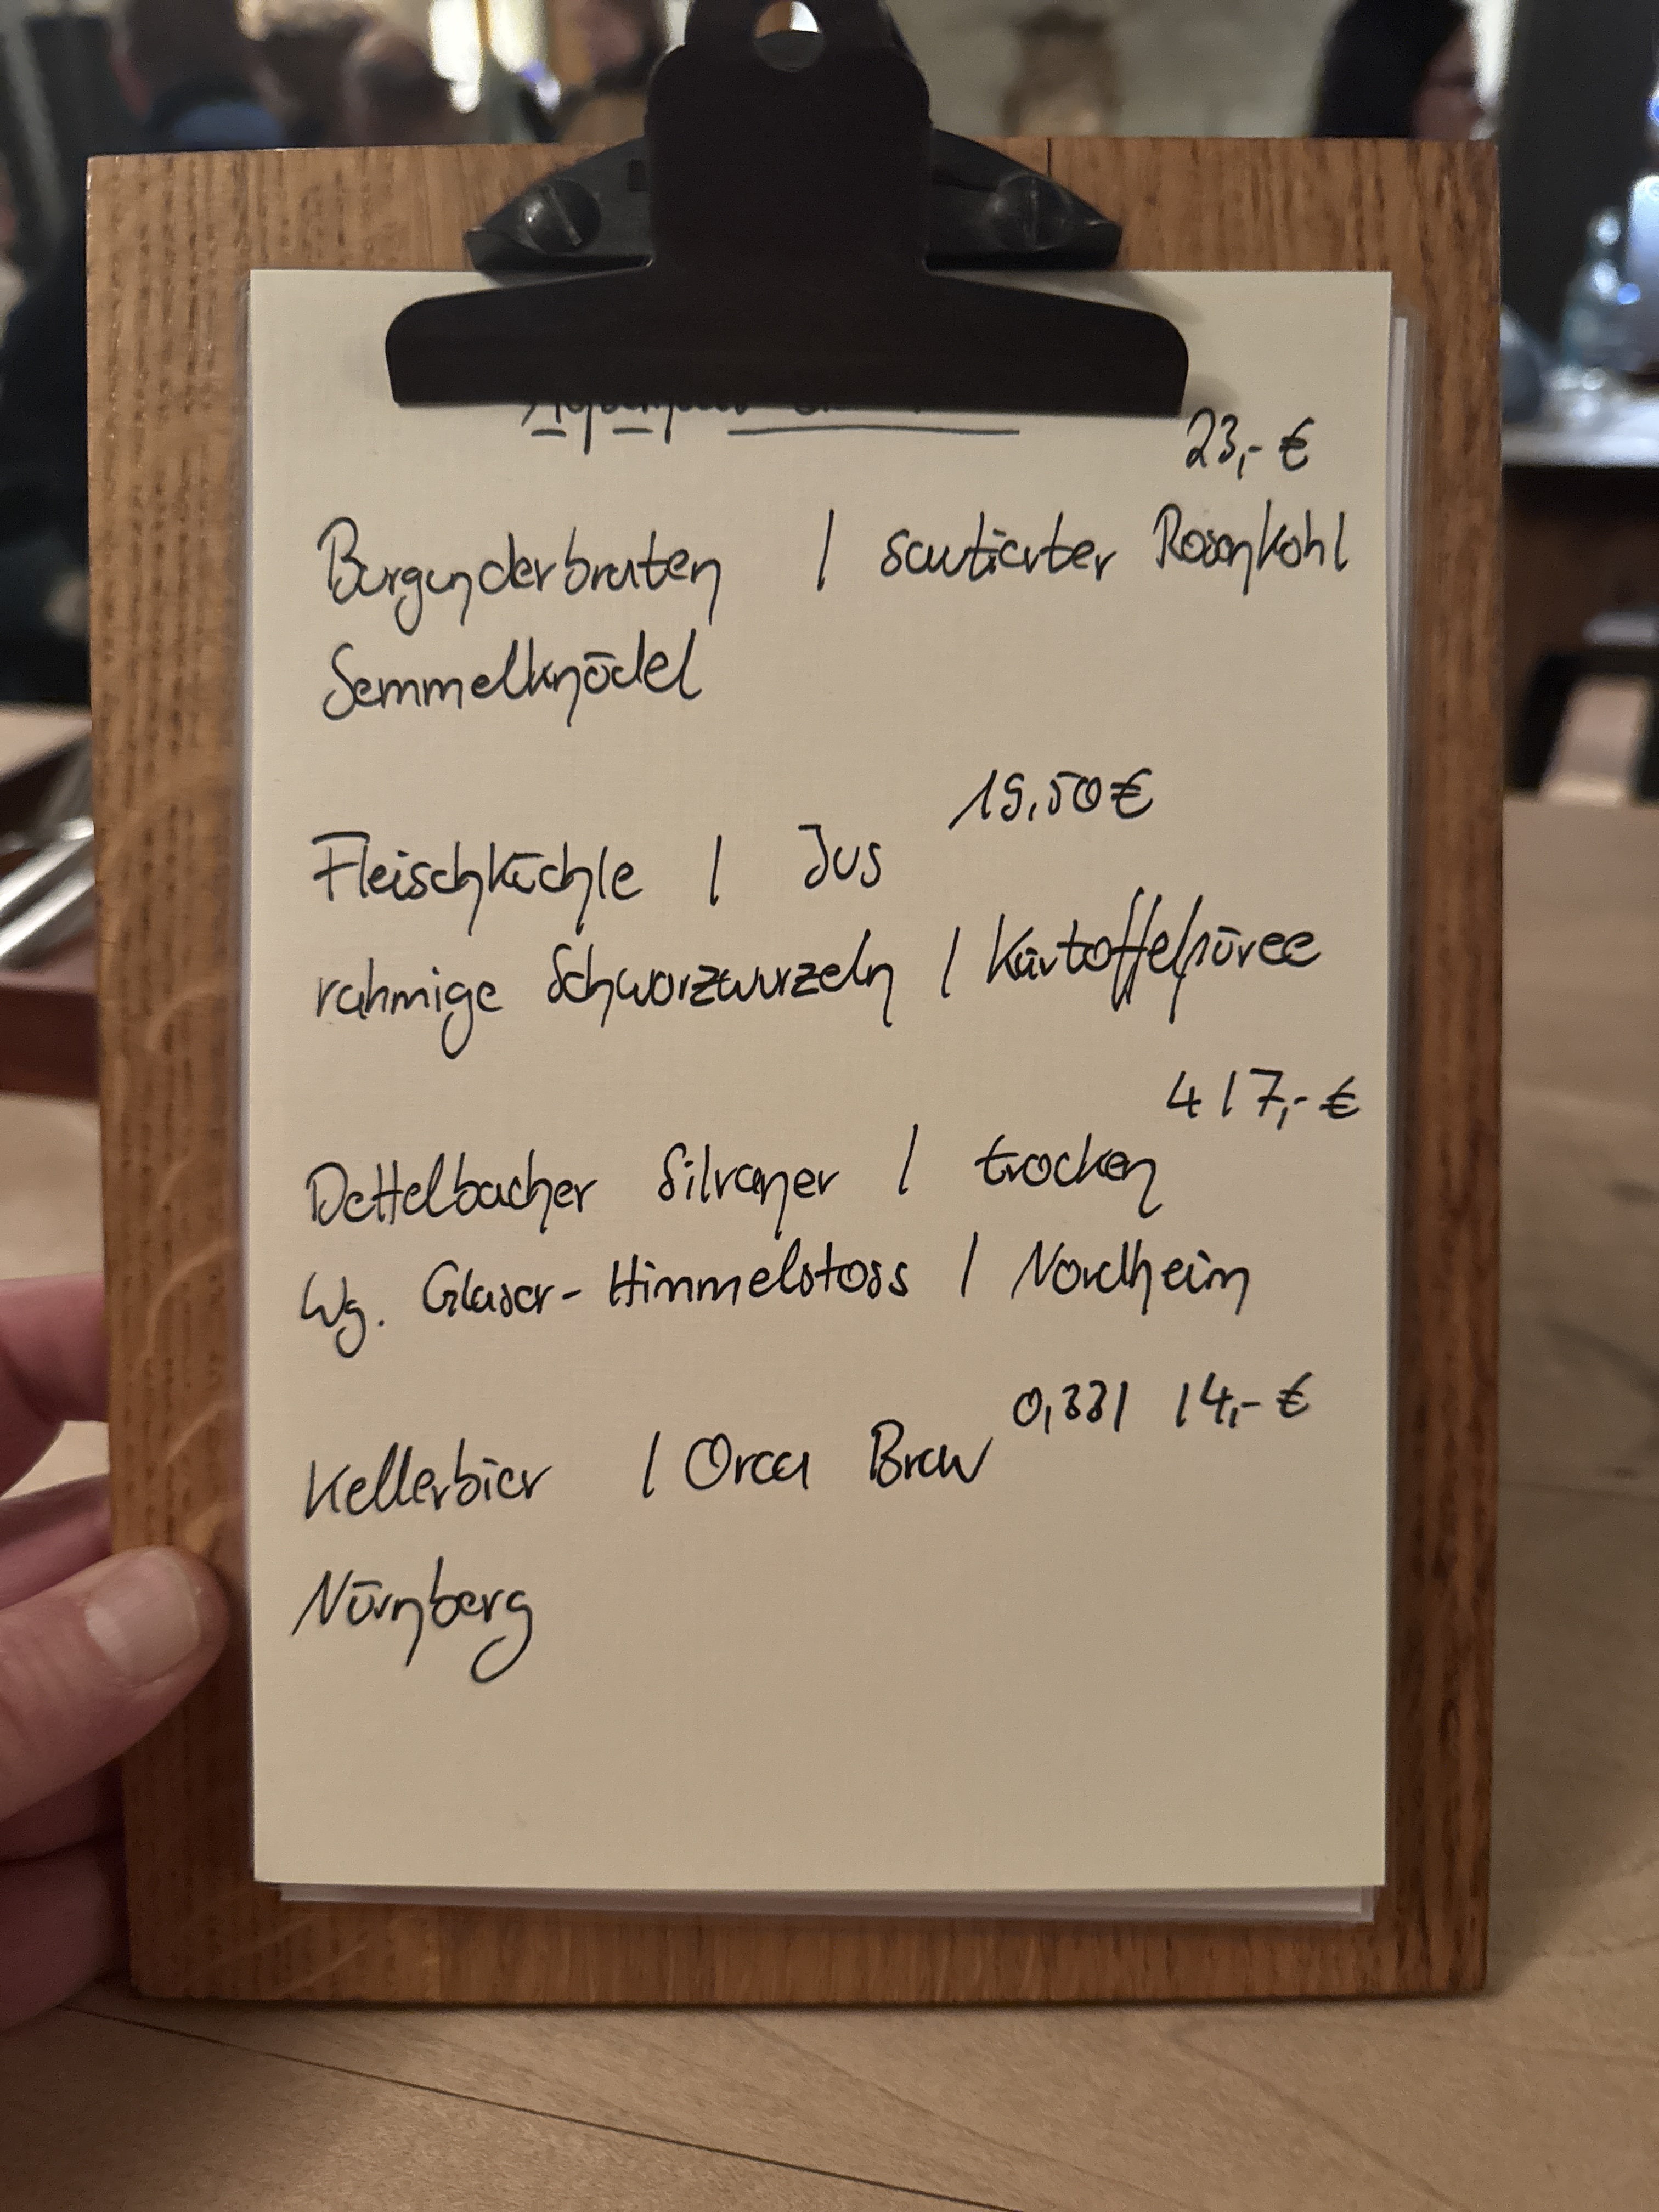 23,- €
Burgunderbraten / sautierter Rosenkohl
Semmelknödel
19,50 €
Fleischküchle / Jus
rahmige Schwarzwurzeln / Kartoffelpüree
4 / 7,- €
Dettelbacher Silvaner / trocken
Wg. Glaser-Himmelstoss / Nordheim
0,33l / 4,- €
Kellerbier / Orca Brau
Nürnberg